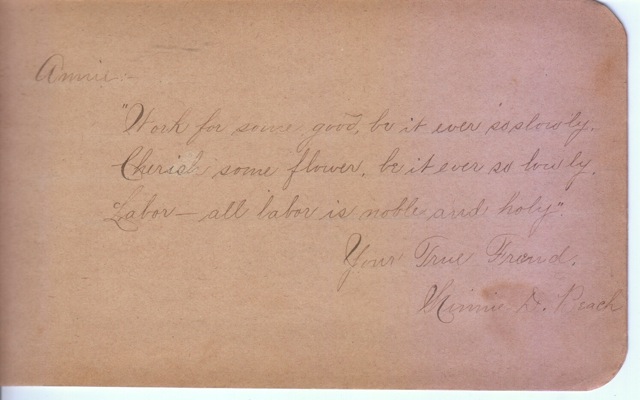 Annie:-
"Work for some good, be it ever so slowly.
Cherish some flower, be it ever so lowly.
Labor — all labor is noble and holy".
Your True Friend.
Minnie D. Peach